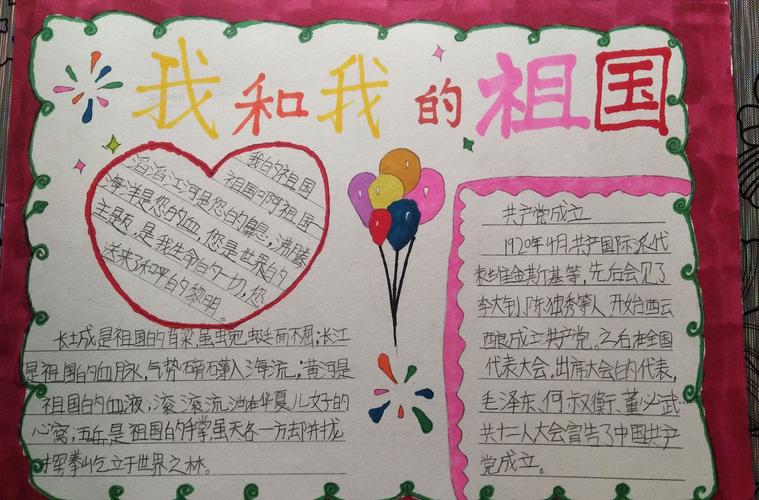 我和我的祖国
我的祖国
祖国啊祖国
滔滔江河是您的息,沸腾
海洋是您的血,您是世界的
主题,是我生命的一切,您
送来了和平的黎明。
长城是祖国的脊梁虽蜿蜒而不屈;长江
是祖国的血脉,气势磅礴入海流;黄河是
祖国的血液,滚滚流淌在华夏儿女子的
心窝;五岳是祖国的手掌虽天各一方却并拢
挥拳屹立于世界之林。
共产党成立
1920年4月,共产国际派代
表维金斯基等,先后会见了
李大钊,陈独秀等人,开始
成立共产党。之后在全国
代表大会,出席大会的代表,
毛泽东、何叔衡、董必武…
共十二人大会宣告了中国共产
党成立。